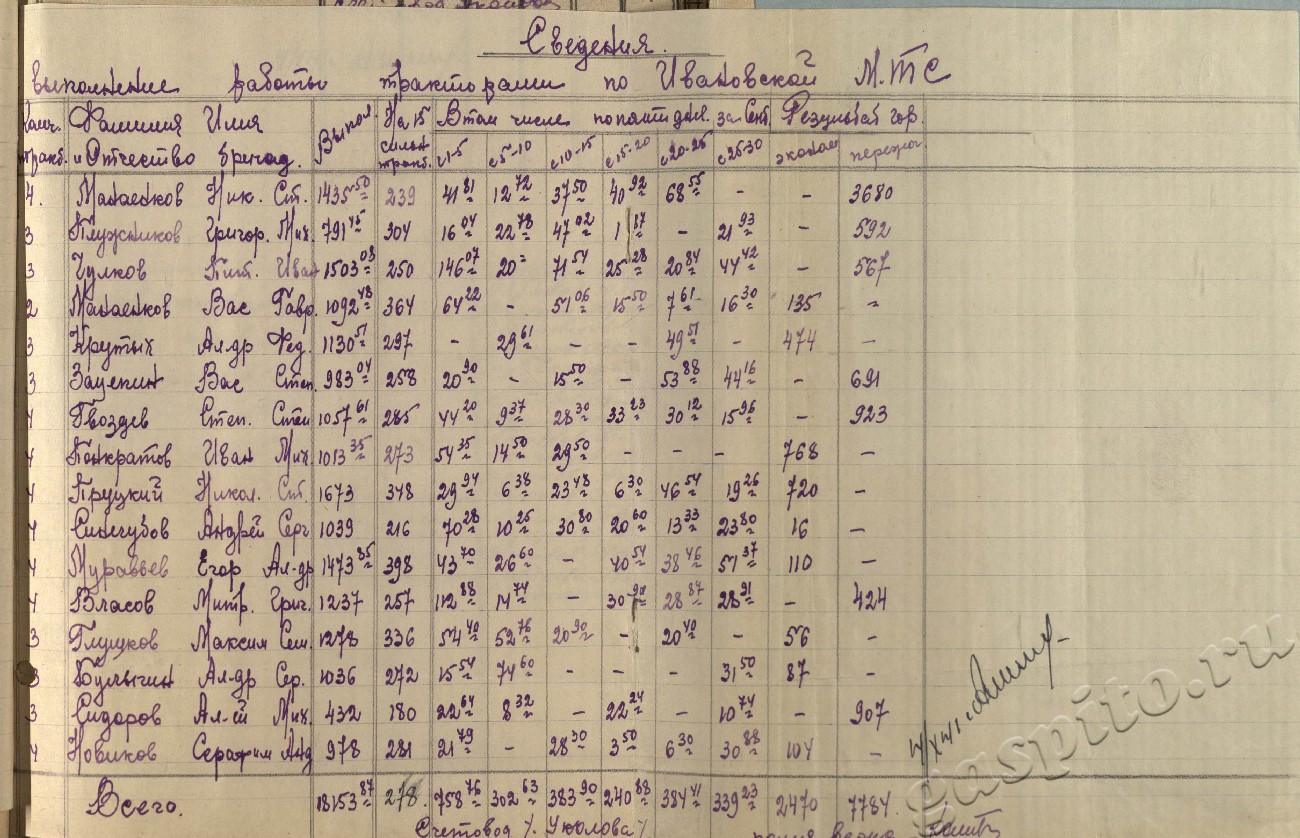 Сведения.
выполнение работы тракторами по Ивановской М.Т.С
Колич. Фамилия Имя Выпол. На 15 В том числе по пяти днл. за Сент. Результат гор.
тракт. и Отчество бригад. сильн тракт. с 1-5 с 5-10 с 10-15 с 15-20 с 20-25 с 25-30 эконом перерас
4. Манаенков Ник. Ст. 1435 50 239 41 81 12 72 37 50 40 92 68 55 - - 3680
3 Плужников Григор. Мих. 791 45 304 16 04 22 78 47 02 1 87 - 21 93 - 592
3 Чулков Пит. Иван 1503 03 250 146 07 20 = 71 54 25 28 20 84 44 42 - 567
2 Манаенков Вас Гавр. 1092 48 364 64 22 - 51 06 15 50 7 61 16 30 135 -
3 Крутых Ал-др Фед. 1130 51 297 - 29 61 - - 49 51 - 474 -
3 Зацепин Вас Степ. 983 04 258 20 90 - 15 50 - 53 88 44 16 - 691
4 Гвоздев Степ. Степ 1057 61 285 44 20 9 37 28 30 33 23 30 12 15 96 - 923
4 Понкратов Иван Мих. 1013 35 273 54 35 14 50 29 50 - - - 768 -
4 Пруцкий Никол. Ст. 1673 348 29 94 6 38 23 48 6 30 46 54 19 26 720 -
4 Синегубов Андрей Серг 1039 216 70 28 10 25 30 80 20 60 13 33 23 80 16 -
4 Муравьев Егор Ал-др 1473 85 398 43 70 26 60 - 40 54 38 46 51 37 110 -
4 Власов Митр. Григ. 1237 257 112 88 14 74 - 30 28 87 28 91 - 424
3 Глушков Максим Сем. 1278 336 54 40 52 76 20 90 - 20 40 - 56 -
3 Булыгин Ал-др Сер. 1036 272 15 54 74 60 - - - 31 50 87 -
3 Сидоров Ал-ей Мих. 432 180 22 64 8 32 - 22 24 - 10 74 - 907
4 Новиков Серафим Анд 978 281 21 79 - 28 30 3 50 6 30 30 88 104 -
Всего. 18153 87 278. 758 76 302 63 383 90 240 88 384 41 339 23 2470 7784
Счетовод /. Уколова /
gaspito.ru